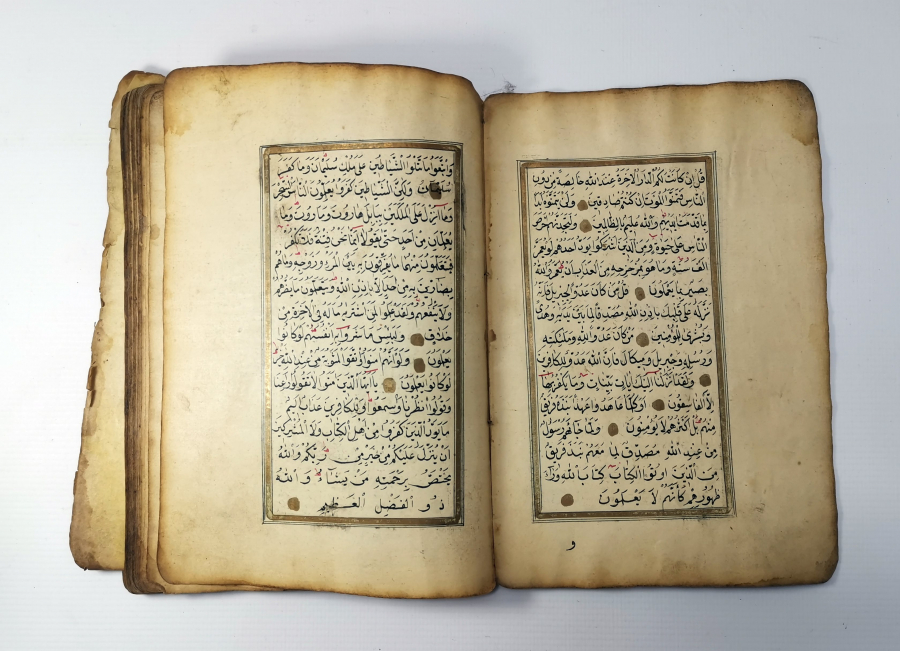 قُلْ اِنْ كَانَتْ لَكُمُ الدَّارُ الْاٰخِرَةُ عِنْدَ اللّٰهِ خَالِصَةً مِنْ دُونِ
النَّاسِ فَتَمَنَّوُا الْمَوْتَ اِنْ كُنْتُمْ صَادِقِينَ وَلَنْ يَتَمَنَّوْهُ اَبَدًا
بِمَا قَدَّمَتْ اَيْدِيهِمْ وَاللّٰهُ عَلِيمٌ بِالظَّالِمِينَ وَلَتَجِدَنَّهُمْ اَحْرَصَ
النَّاسِ عَلَى حَيٰوةٍ وَمِنَ الَّذِينَ اَشْرَكُوا يَوَدُّ اَحَدُهُمْ لَوْ يُعَمَّرُ
اَلْفَ سَنَةٍ وَمَا هُوَ بِمُزَحْزِحِهِ مِنَ الْعَذَابِ اَنْ يُعَمَّرَ وَاللّٰهُ
بَصِيرٌ بِمَا يَعْمَلُونَ قُلْ مَنْ كَانَ عَدُوًّا لِجِبْرِيلَ فَاِنَّهُ
نَزَّلَهُ عَلَى قَلْبِكَ بِاِذْنِ اللّٰهِ مُصَدِّقًا لِمَا بَيْنَ يَدَيْهِ وَهُدًى
وَبُشْرٰى لِلْمُؤْمِنِينَ مَنْ كَانَ عَدُوًّا لِلّٰهِ وَمَلٰئِكَتِهِ
وَرُسُلِهِ وَجِبْرِيلَ وَمِيكَالَ فَاِنَّ اللّٰهَ عَدُوٌّ لِلْكَافِرِينَ
وَلَقَدْ اَنْزَلْنَا اِلَيْكَ اٰيَاتٍ بَيِّنَاتٍ وَمَا يَكْفُرُ بِهَا
اِلَّا الْفَاسِقُونَ اَوَكُلَّمَا عَاهَدُوا عَهْدًا نَبَذَهُ فَرِيقٌ
مِنْهُمْ بَلْ اَكْثَرُهُمْ لَا يُؤْمِنُونَ وَلَمَّا جَاءَهُمْ رَسُولٌ
مِنْ عِنْدِ اللّٰهِ مُصَدِّقٌ لِمَا مَعَهُمْ نَبَذَ فَرِيقٌ
مِنَ الَّذِينَ اُوتُوا الْكِتَابَ كِتَابَ اللّٰهِ وَرَاءَ
ظُهُورِهِمْ كَاَنَّهُمْ لَا يَعْلَمُونَ
و
وَاتَّبَعُوا مَا تَتْلُوا الشَّيَاطِينُ عَلَى مُلْكِ سُلَيْمَانَ وَمَا كَفَرَ
سُلَيْمَانُ وَلٰكِنَّ الشَّيَاطِينَ كَفَرُوا يُعَلِّمُونَ النَّاسَ السِّحْرَ
وَمَا اُنْزِلَ عَلَى الْمَلَكَيْنِ بِبَابِلَ هَارُوتَ وَمَارُوتَ وَمَا
يُعَلِّمَانِ مِنْ اَحَدٍ حَتّٰى يَقُولَا اِنَّمَا نَحْنُ فِتْنَةٌ فَلَا تَكْفُرْ
فَيَتَعَلَّمُونَ مِنْهُمَا مَا يُفَرِّقُونَ بِهِ بَيْنَ الْمَرْءِ وَزَوْجِهِ وَمَا هُمْ
بِضَارِّينَ بِهِ مِنْ اَحَدٍ اِلَّا بِاِذْنِ اللّٰهِ وَيَتَعَلَّمُونَ مَا يَضُرُّهُمْ
وَلَا يَنْفَعُهُمْ وَلَقَدْ عَلِمُوا لَمَنِ اشْتَرٰيهُ مَا لَهُ فِي الْاٰخِرَةِ مِنْ
خَلَاقٍ وَلَبِئْسَ مَا شَرَوْا بِهِ اَنْفُسَهُمْ لَوْ كَانُوا
يَعْلَمُونَ وَلَوْ اَنَّهُمْ اٰمَنُوا وَاتَّقَوْا لَمَثُوبَةٌ مِنْ عِنْدِ اللّٰهِ خَيْرٌ
لَوْ كَانُوا يَعْلَمُونَ يَا اَيُّهَا الَّذِينَ اٰمَنُوا لَا تَقُولُوا رَاعِنَا
وَقُولُوا انْظُرْنَا وَاسْمَعُوا وَلِلْكَافِرِينَ عَذَابٌ اَلِيمٌ
مَا يَوَدُّ الَّذِينَ كَفَرُوا مِنْ اَهْلِ الْكِتَابِ وَلَا الْمُشْرِكِينَ
اَنْ يُنَزَّلَ عَلَيْكُمْ مِنْ خَيْرٍ مِنْ رَبِّكُمْ وَاللّٰهُ
يَخْتَصُّ بِرَحْمَتِهِ مَنْ يَشَاءُ وَاللّٰهُ
ذُو الْفَضْلِ الْعَظِيمِ